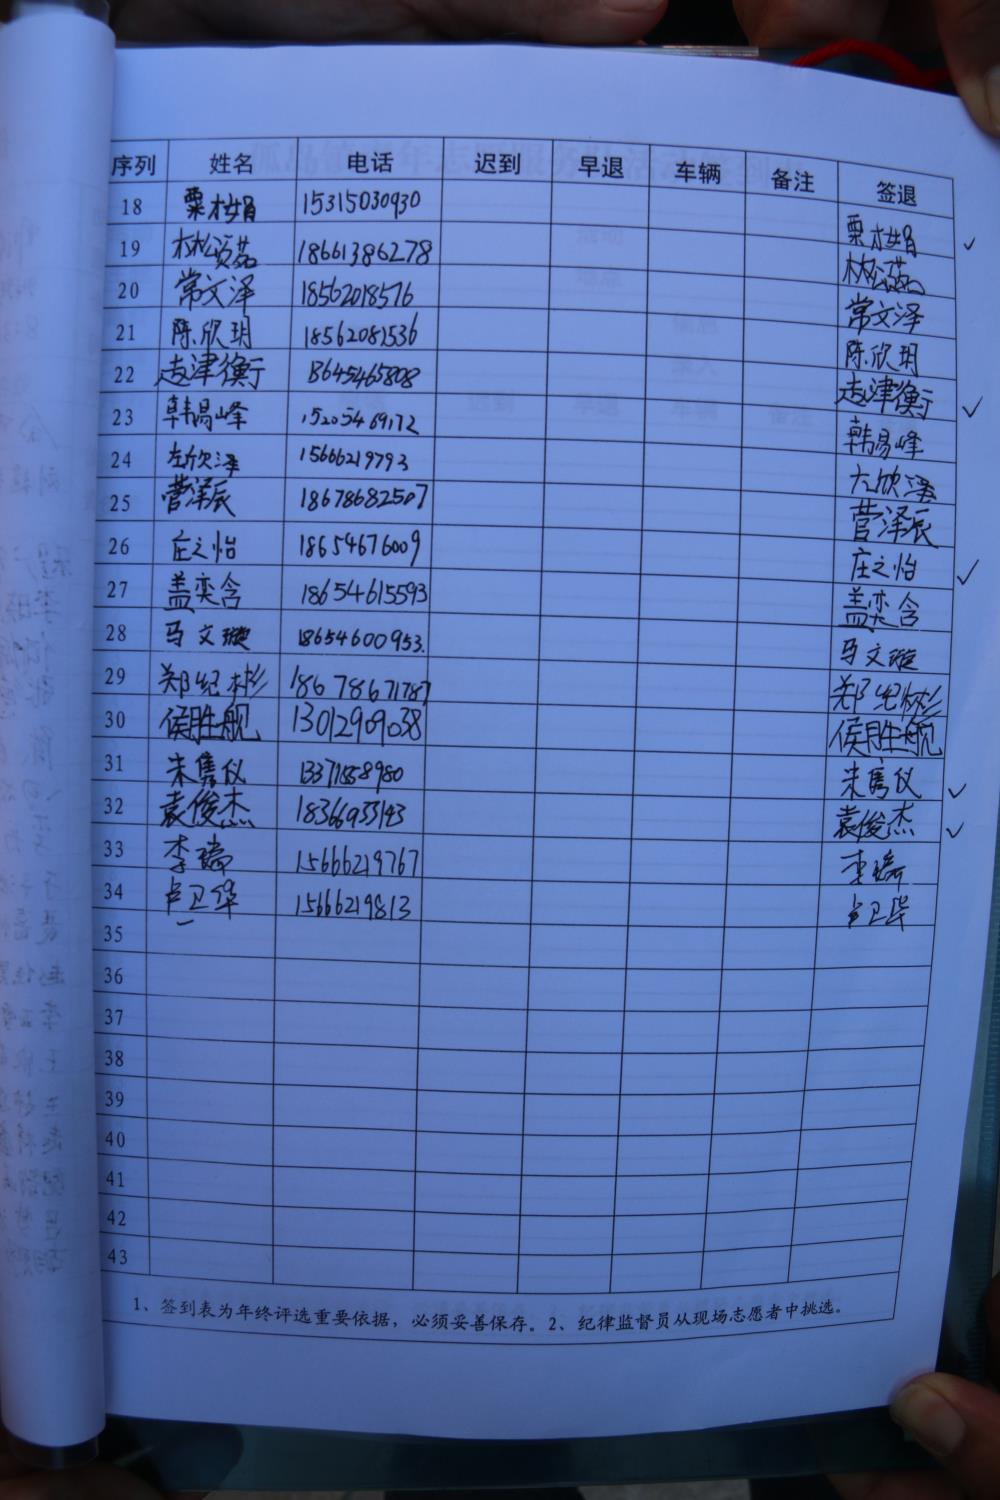 序列 姓名 电话 迟到 早退 车辆 备注 签退
18 粟木娟 15315030930 粟木娟 ✓
19 18661386278
20 常文泽 18562018576 常文泽
21 陈欣玥 18562081536 陈欣玥
22 津衡 津衡 ✓
23 韩易峰 15205469172 韩易峰
24 左欣泽 15666219793 欣泽
25 菅泽辰 18678682507 菅泽辰
26 庄之怡 18654676009 庄之怡 ✓
27 盖奕含 18654615593 盖奕含
28 马文璇 18654600953. 马文璇
29 郑纪彬 18678671787 郑纪彬
30 侯胜舰 13012909038 侯胜舰
31 朱隽仪 朱隽仪 ✓
32 袁俊杰 袁俊杰 ✓
33 李瑞 15666219767 李瑞
34 卢卫华 15666219813 卢卫华
35
36
37
38
39
40
41
42
43
1、签到表为年终评选重要依据，必须妥善保存。2、纪律监督员从现场志愿者中挑选。